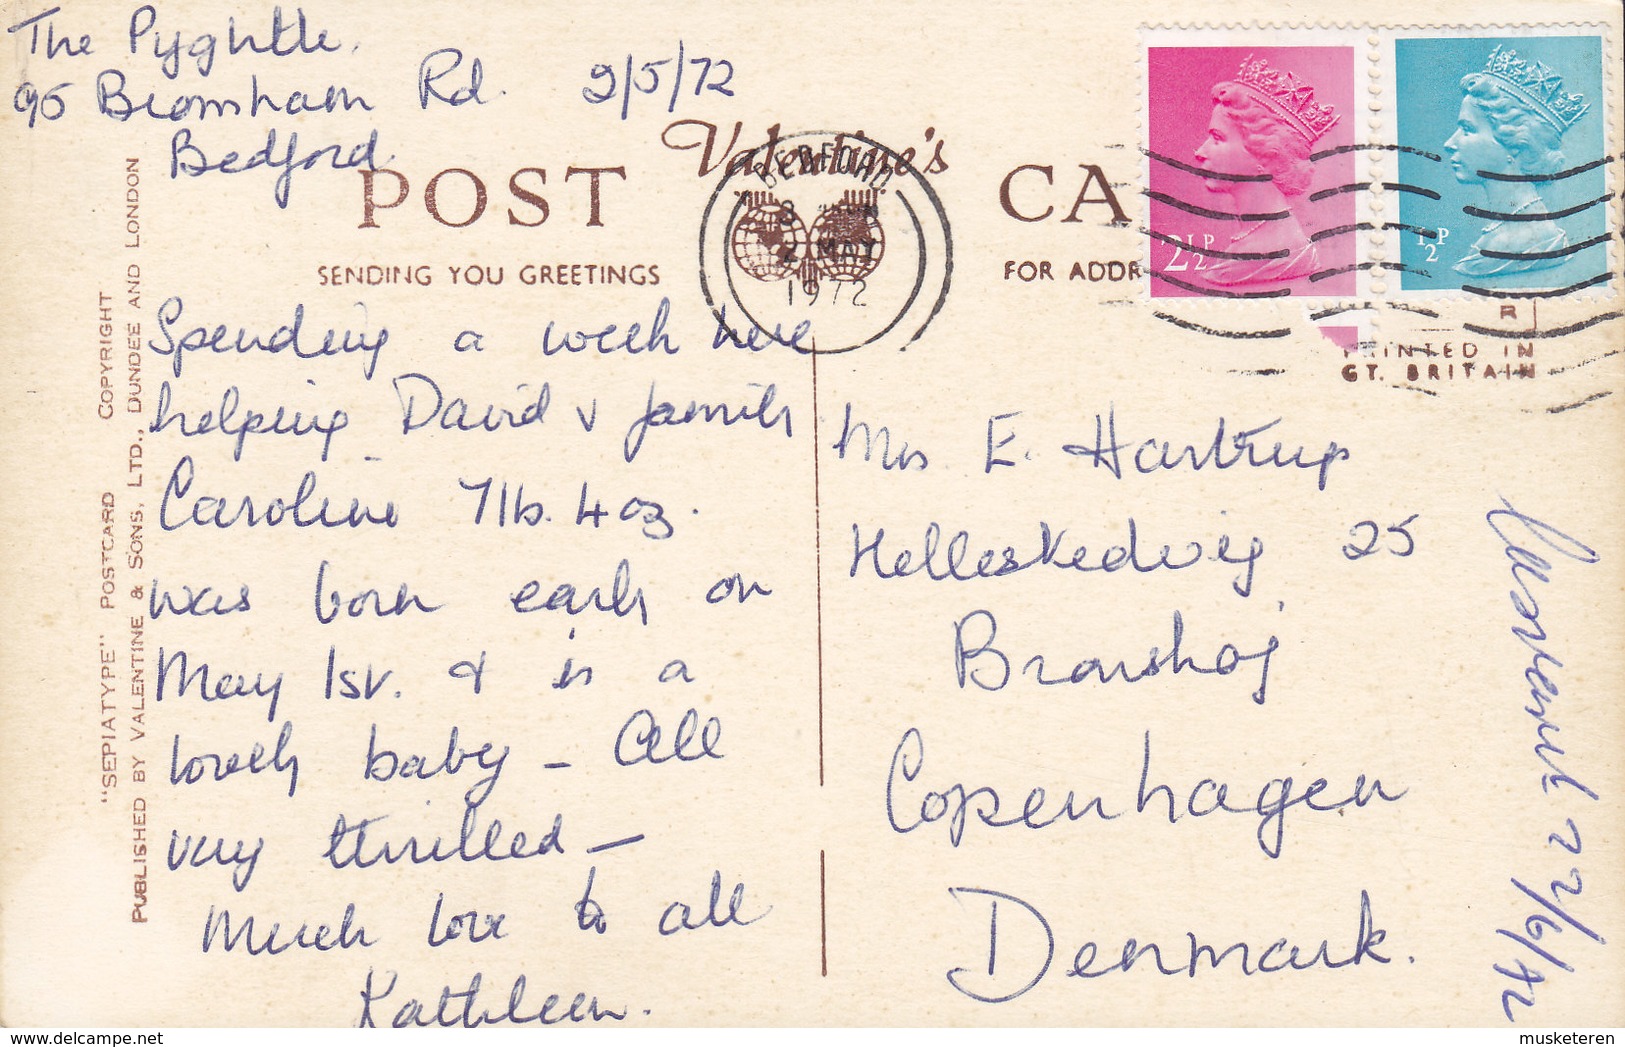 The Pyghtle.
95 Bromham Rd. 2/5/72
Bedford.
Valentine's
POST CA
SENDING YOU GREETINGS
FOR ADDR
BEDFORD
2 MAY
1972
2½P
½P
R
PRINTED IN
GT. BRITAIN
"SEPIATYPE" POSTCARD COPYRIGHT
PUBLISHED BY VALENTINE & SONS, LTD., DUNDEE AND LONDON
Spending a week here
helping David & family
Caroline 7lb. 4oz.
was born early on
May 1st. & is a
lovely baby - All
very thrilled -
Much love to all
Kathleen.
Mrs E. Hartrup
Helleskedvej 25
Bronshoj
Copenhagen
Denmark.
22/6/72
musketeren